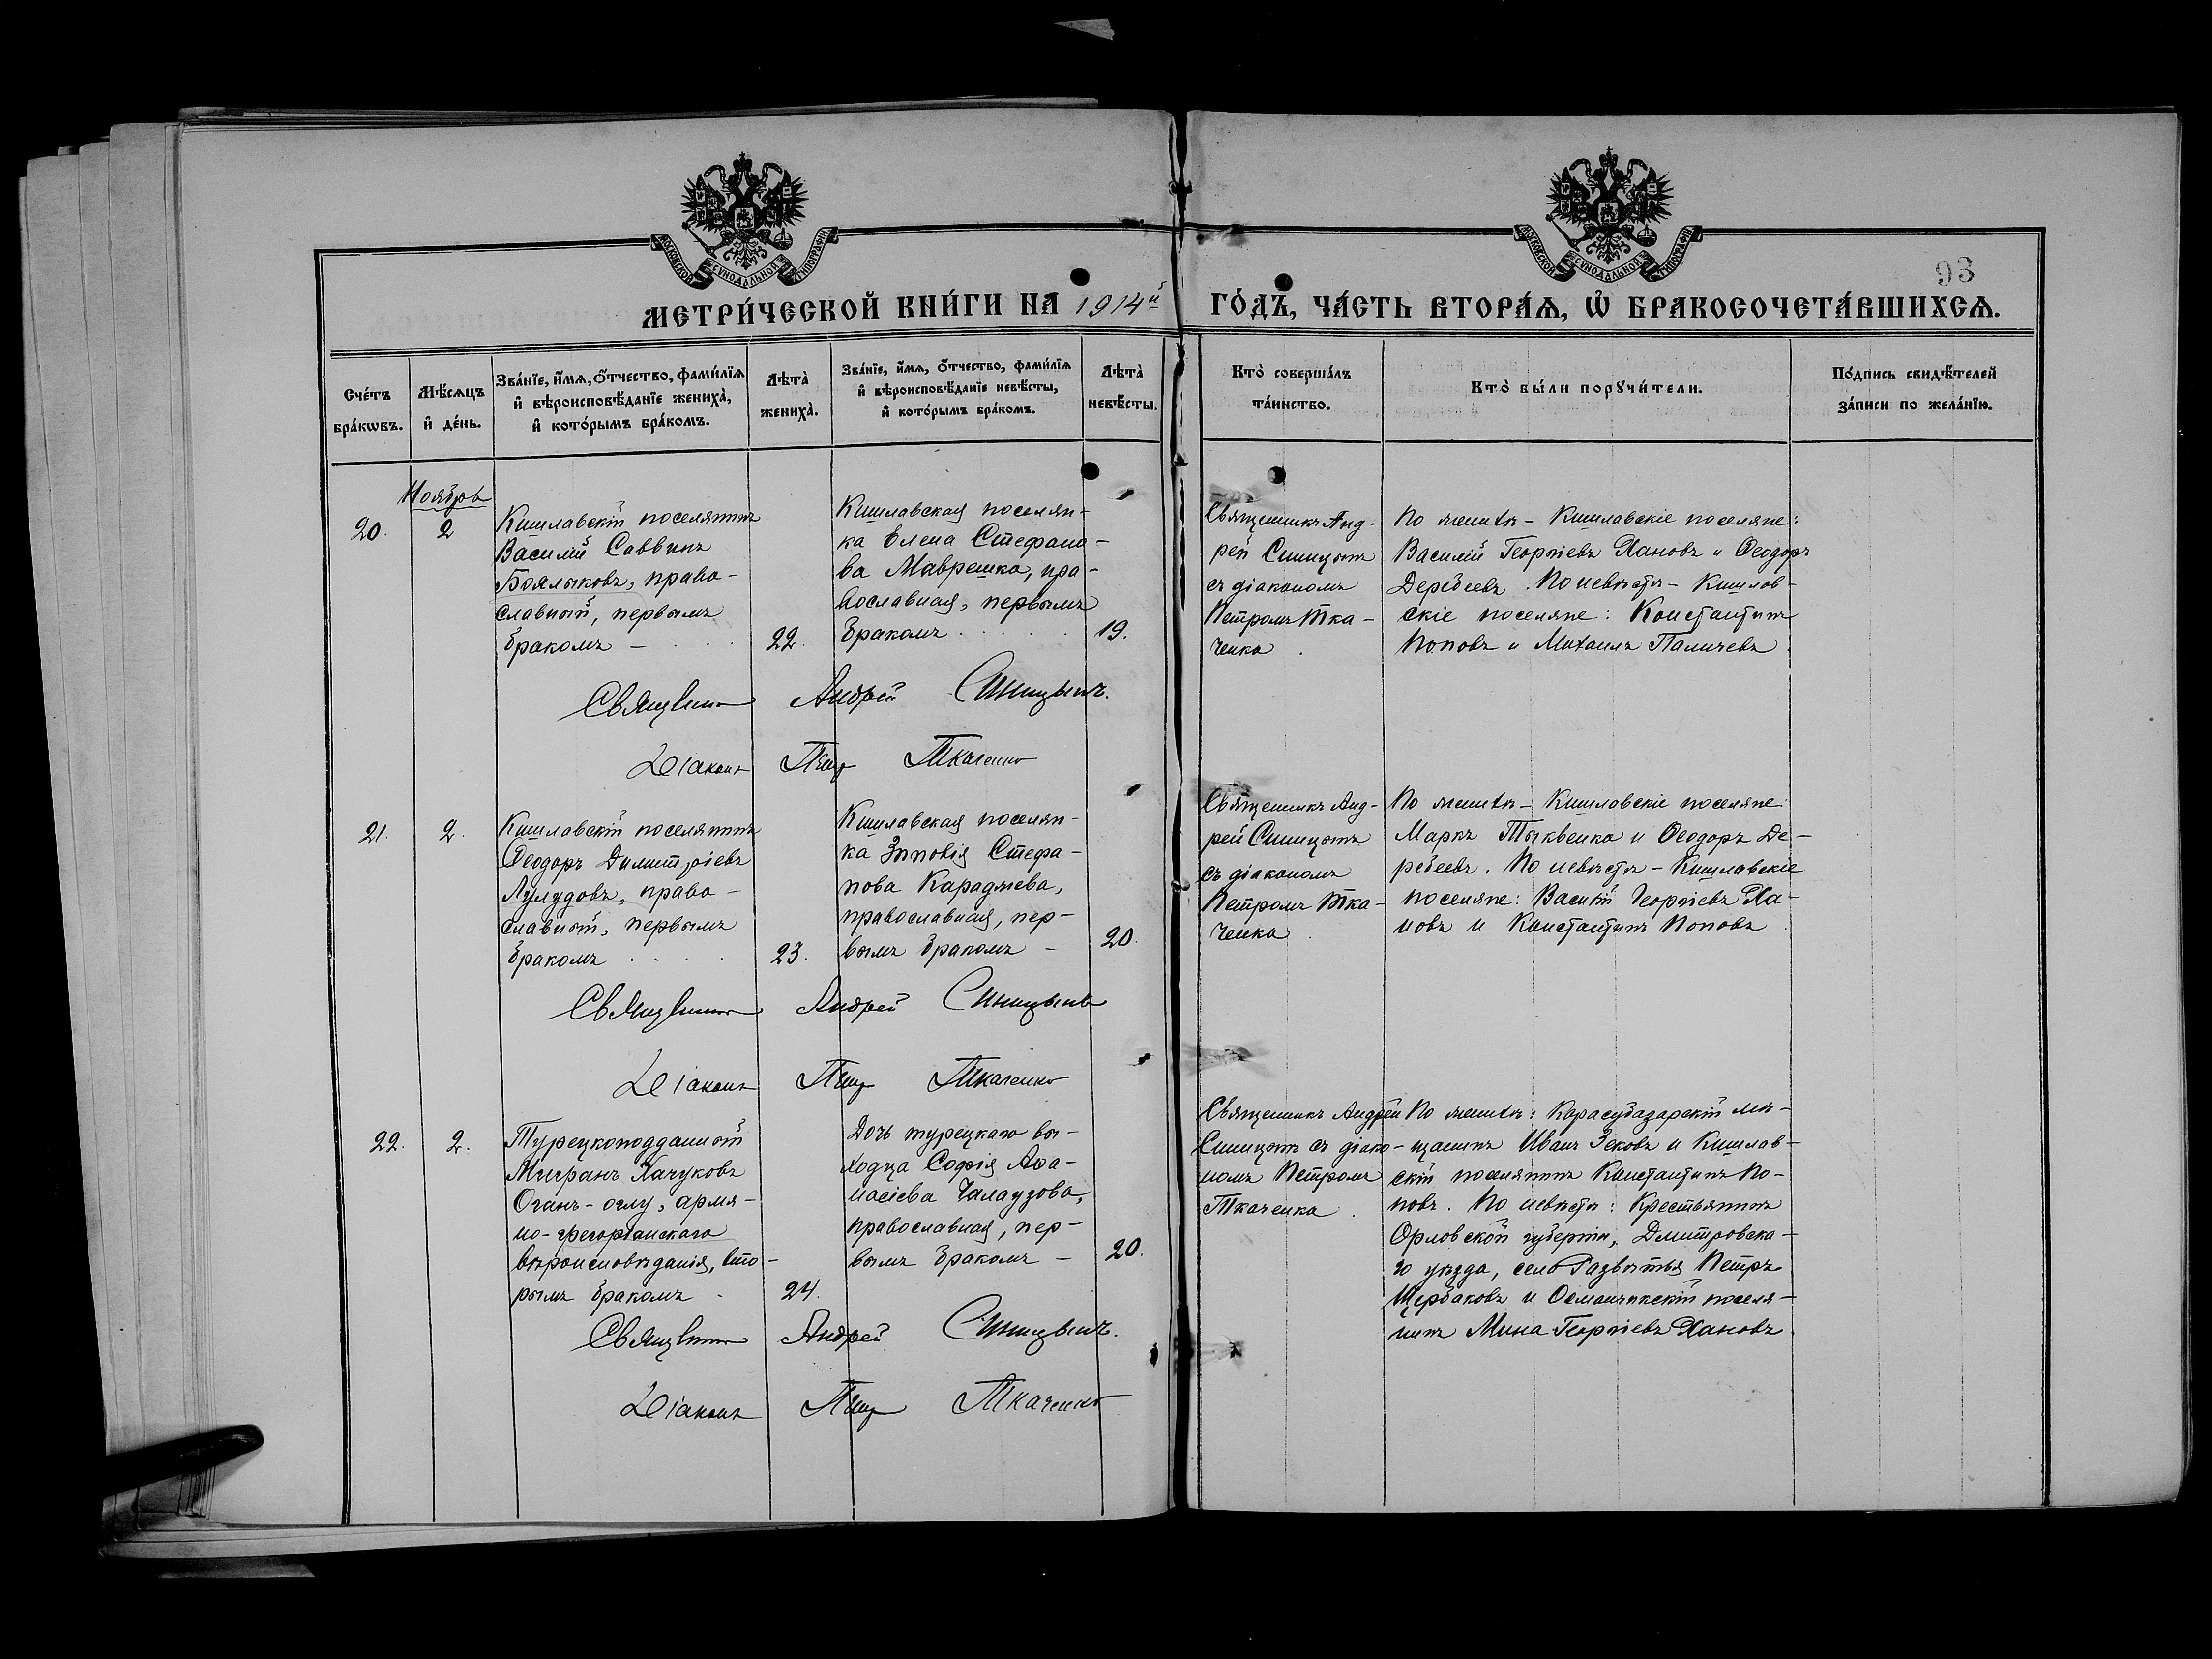 МОСКОВСКОЙ СѴНОДАЛЬНОЙ ТИПОГРАФІИ
МОСКОВСКОЙ СѴНОДАЛЬНОЙ ТИПОГРАФІИ
93
МЕТРИ́ЧЕСКОЙ КНИ́ГИ НА 1914й ГО́ДЪ, ЧА́СТЬ ВТОРА́Ѧ, Ѡ҆ БРАКОСОЧЕТА́ВШИХСѦ.
Сче́тъ бра́кѡвъ.
Мѣ́сѧцъ и҆ де́нь.
Зва́нїе, и҆́мѧ, ѻ҆́тчество, фами́лїѧ
и҆ вѣроисповѣ́данїе жениха̀,
и҆ кото́рымъ бра́комъ.
Лѣта̀ жениха̀.
Зва́нїе, и҆́мѧ, ѻ҆́тчество, фами́лїѧ
и҆ вѣроисповѣ́данїе невѣ́сты,
и҆ кото́рымъ бра́комъ.
Лѣта̀ невѣ́сты.
Кто̀ соверша́лъ
та́инство.
Кто̀ бы́ли порꙋчи́тели.
По́дпись свидѣ́телей
за́писи по жела́нїю.
Ноябрь
20.
2
Кишлавскій поселянинъ
Василій Саввинъ
Боялыковъ, право-
славный, первымъ
бракомъ -
22.
Кишлавская поселян-
ка Елена Стефано-
ва Маврешко, пра-
вославная, первымъ
бракомъ
19.
Священникъ Анд-
рей Синицынъ
съ діакономъ
Петромъ Тка-
ченко
По женихѣ - Кишлавскіе поселяне:
Василій Георгіевъ Хановъ и Ѳеодоръ
Деребеевъ. По невѣстѣ - Кишлов-
скіе поселяне: Константинъ
Поповъ и Михаилъ Паличевъ
Священникъ Андрей Синицынъ.
Діаконъ Петръ Ткаченко
21.
2.
Кишлавскій поселянинъ
Ѳеодоръ Димитріевъ
Лулудовъ, право-
славный, первымъ
бракомъ
23.
Кишлавская поселян-
ка Зиновія Стефа-
нова Караджева,
православная, пер-
вымъ бракомъ -
20.
Священникъ Анд-
рей Синицынъ
съ діакономъ
Петромъ Тка-
ченко
По женихѣ - Кишловскіе поселяне
Маркъ Тыквенко и Ѳеодоръ Де-
ребеевъ. По невѣстѣ - Кишлавскіе
поселяне: Василій Георгіевъ Ха-
новъ и Константинъ Поповъ
Священникъ Андрей Синицынъ
Діаконъ Петръ Ткаченко
22.
2.
Турецкоподданный
Мигранъ Хачуковъ
Оганъ-оглу, армя-
но-грегоріанскаго
вѣроисповѣданія, вто-
рымъ бракомъ -
24.
Дочь турецкаго вы-
ходца Софія Аѳа-
насіева Чалаузова,
православная, пер-
вымъ бракомъ -
20.
Священникъ Андрей
Синицынъ съ діако-
номъ Петромъ
Ткаченко
По женихѣ: Карасубазарскій мѣ-
щанинъ Иванъ Зековъ и Кишлав-
скій поселянинъ Константинъ По-
повъ. По невѣстѣ: Крестьянинъ
Орловской губерніи, Дмитровска-
го уѣзда, село Развѣтья Петръ
Щербаковъ и Османчикскій поселя-
нинъ Мина Георгіевъ Хановъ.
Священникъ Андрей Синицынъ.
Діаконъ Петръ Ткаченко